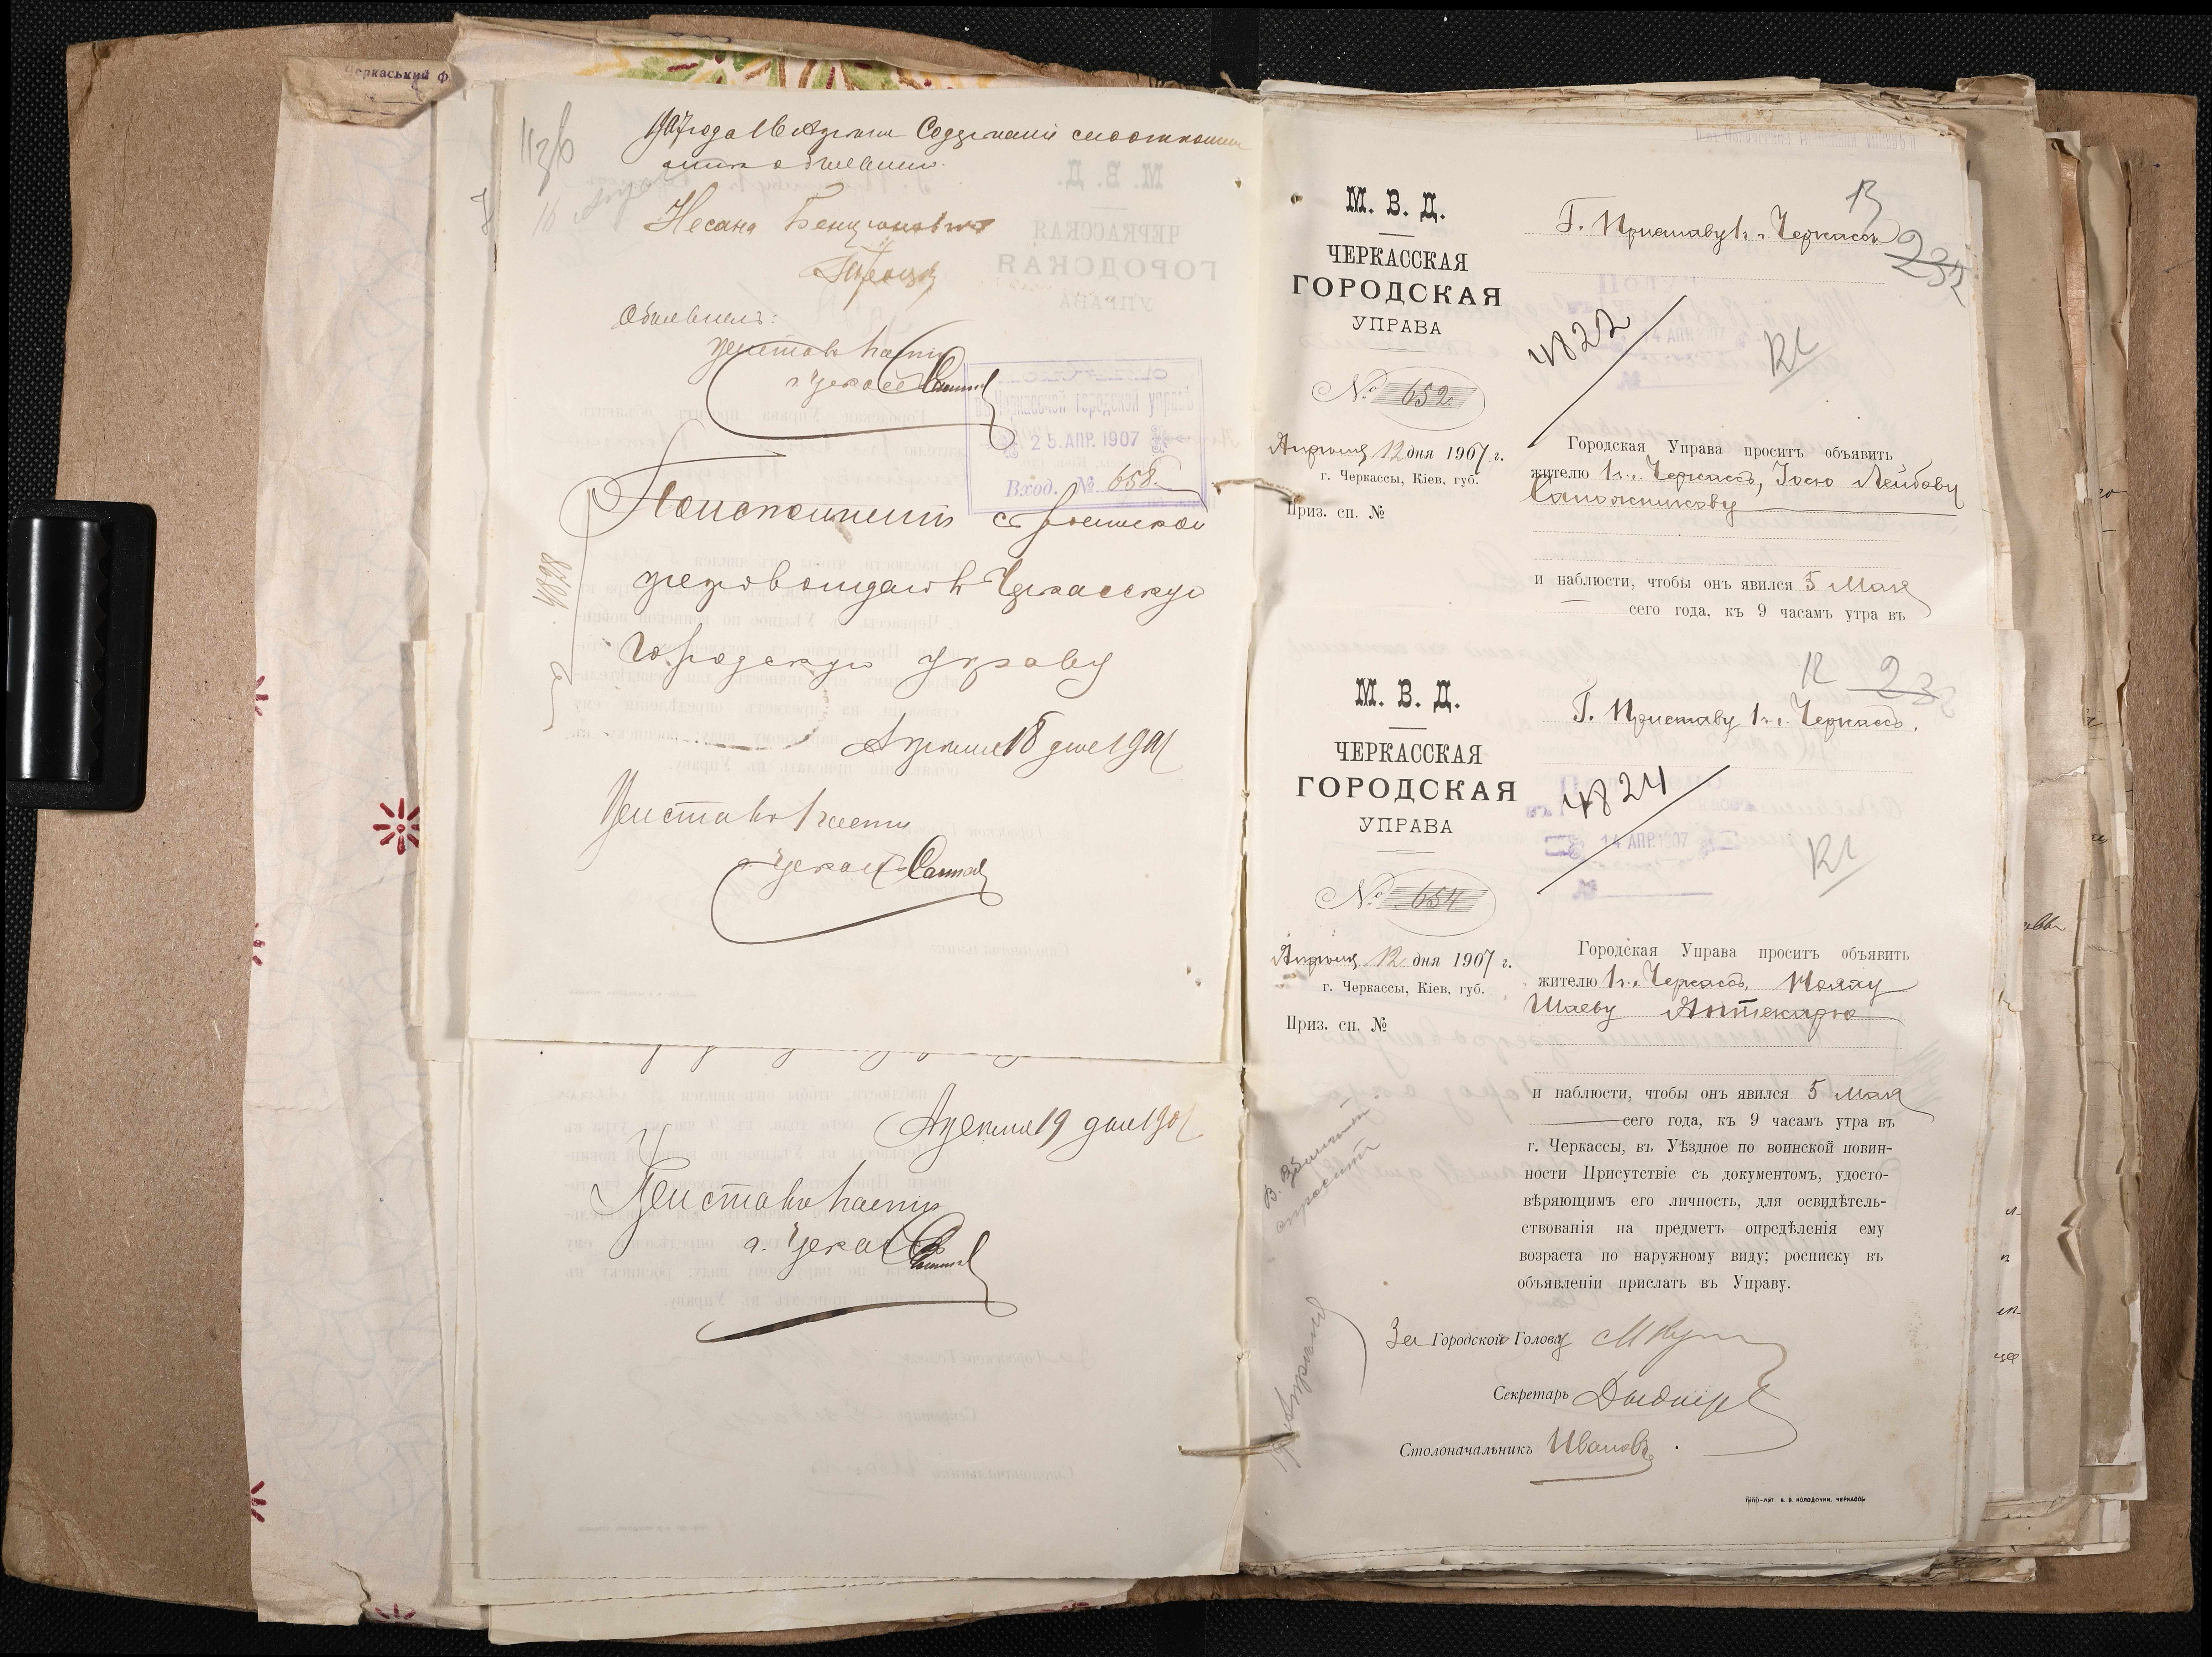 Черкаський ф
1907 года 16 Апреля Содержание сего отношения
мне объявлено.
Несанъ Бенционовичъ
Объявилъ:
Приставъ 1 части
г. Черкассъ
въ Черкасской городской управѣ
25. АПР. 1907
Вход. № 658
По исполненіи с роспиской
препровождаю въ Черкасскую
городскую управу
4828
Апреля 18 дня 1907
Приставъ 1 части
г. Черкассъ
Апреля 19 дня 1907
Приставъ 1 части
г. Черкассъ
М. В. Д.
ЧЕРКАССКАЯ
ГОРОДСКАЯ
УПРАВА
№ 652.
Апрѣля 12 дня 1907 г.
г. Черкассы, Кіев. губ.
Приз. сп. №
13
Г. Приставу 1 ч. Черкассъ
232
4822
14 АПР. 1907
Городская Управа проситъ объявить
жителю 1 ч. г. Черкассъ, Іосю Лейбову
Сапожникову
и наблюсти, чтобы онъ явился 5 Мая
сего года, къ 9 часамъ утра въ
М. В. Д.
ЧЕРКАССКАЯ
ГОРОДСКАЯ
УПРАВА
№ 654.
Апрѣля 12 дня 1907 г.
г. Черкассы, Кіев. губ.
Приз. сп. №
12
Г. Приставу 1 ч. г. Черкассъ.
4824
14 АПР. 1907
№
Городская Управа проситъ объявить
жителю 1 ч. г. Черкассъ,
Шаеву Аптекарю
и наблюсти, чтобы онъ явился 5 Мая
сего года, къ 9 часамъ утра въ
г. Черкассы, въ Уѣздное по воинской повин-
ности Присутствіе съ документомъ, удосто-
вѣряющимъ его личность, для освидѣтель-
ствованія на предметъ опредѣленія ему
возраста по наружному виду; росписку въ
объявленіи прислать въ Управу.
За Городской Голову
Секретарь
Столоначальникъ Ивановъ
ТИПО-ЛИТ В. В. КОЛОДОЧКИ, ЧЕРКАССЫ